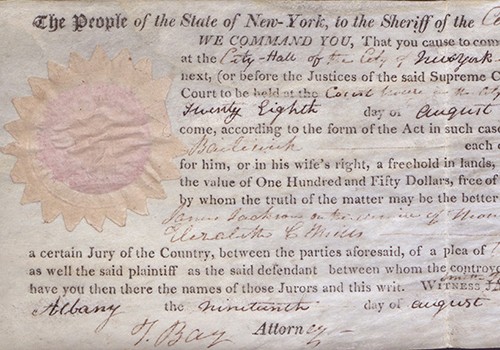 The People of the State of New-York, to the Sheriff of the
WE COMMAND YOU, That you cause to come
at the City-Hall of the City of New York
next, (or before the Justices of the said Supreme C
Court to be held at the Court house in the
Twenty Eighth day of August
come, according to the form of the Act in such case
Bailiwick each
for him, or in his wife's right, a freehold in lands,
the value of One Hundred and Fifty Dollars, free of
by whom the truth of the matter may be the better
James Jackson on the demise of
Elizabeth C Mills
a certain Jury of the Country, between the parties aforesaid, of a plea of
as well the said plaintiff as the said defendant between whom the controve
have you then there the names of those Jurors and this writ. WITNESS
Albany the nineteenth day of august
T. Bay Attorney